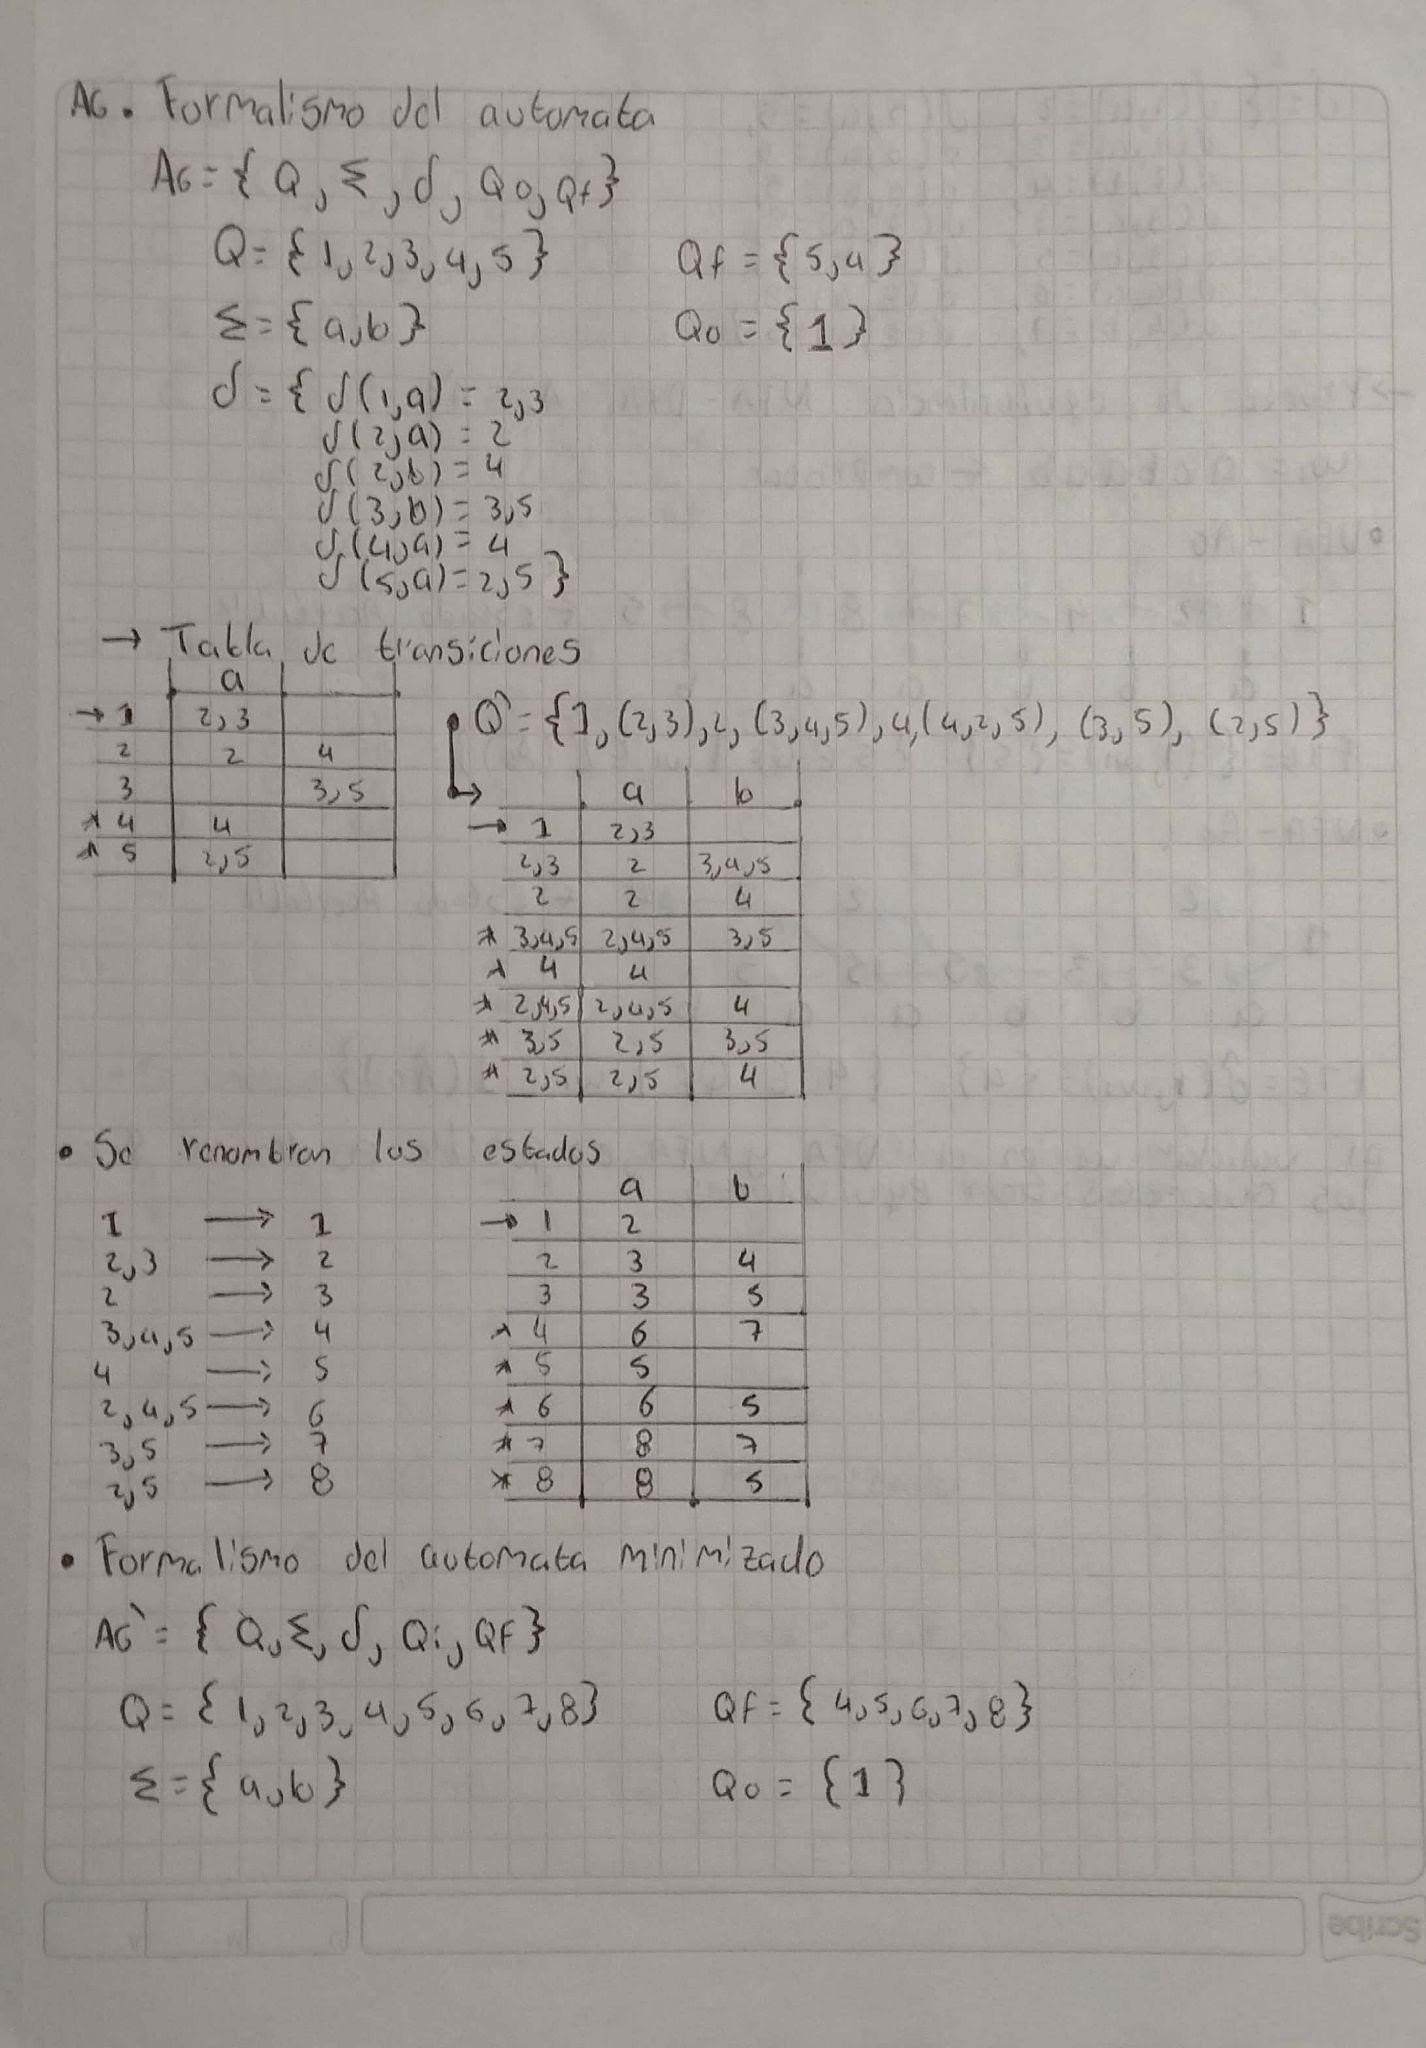 A6. Formalismo del automata
A6={ Q, Σ, δ, Q0, Qf}
Q={1,2,3,4,5}
Qf={5,4}
Σ={a,b}
Q0={1}
δ={ δ(1,a)=2,3
δ(2,a)=2
δ(2,b)=4
δ(3,b)=3,5
δ(4,a)=4
δ(5,a)=2,5}
→ Tabla de transiciones
a
→ 1 2,3
2 2 4
3 3,5
* 4 4
* 5 2,5
• Q`={1,(2,3),2,(3,4,5),4,(4,2,5),(3,5),(2,5)}
a b
→ 1 2,3
2,3 2 3,4,5
2 2 4
* 3,4,5 2,4,5 3,5
* 4 4
* 2,4,5 2,4,5 4
* 3,5 2,5 3,5
* 2,5 2,5 4
• Se renombran los estados
1 → 1
2,3 → 2
2 → 3
3,4,5 → 4
4 → 5
2,4,5 → 6
3,5 → 7
2,5 → 8
a b
→ 1 2
2 3 4
3 3 5
* 4 6 7
* 5 5
* 6 6 5
* 7 8 7
* 8 8 5
• Formalismo del automata minimizado
A6`={ Q,Σ,δ,Qi,QF}
Q={1,2,3,4,5,6,7,8}
QF={4,5,6,7,8}
Σ={a,b}
Q0={1}
Scribe